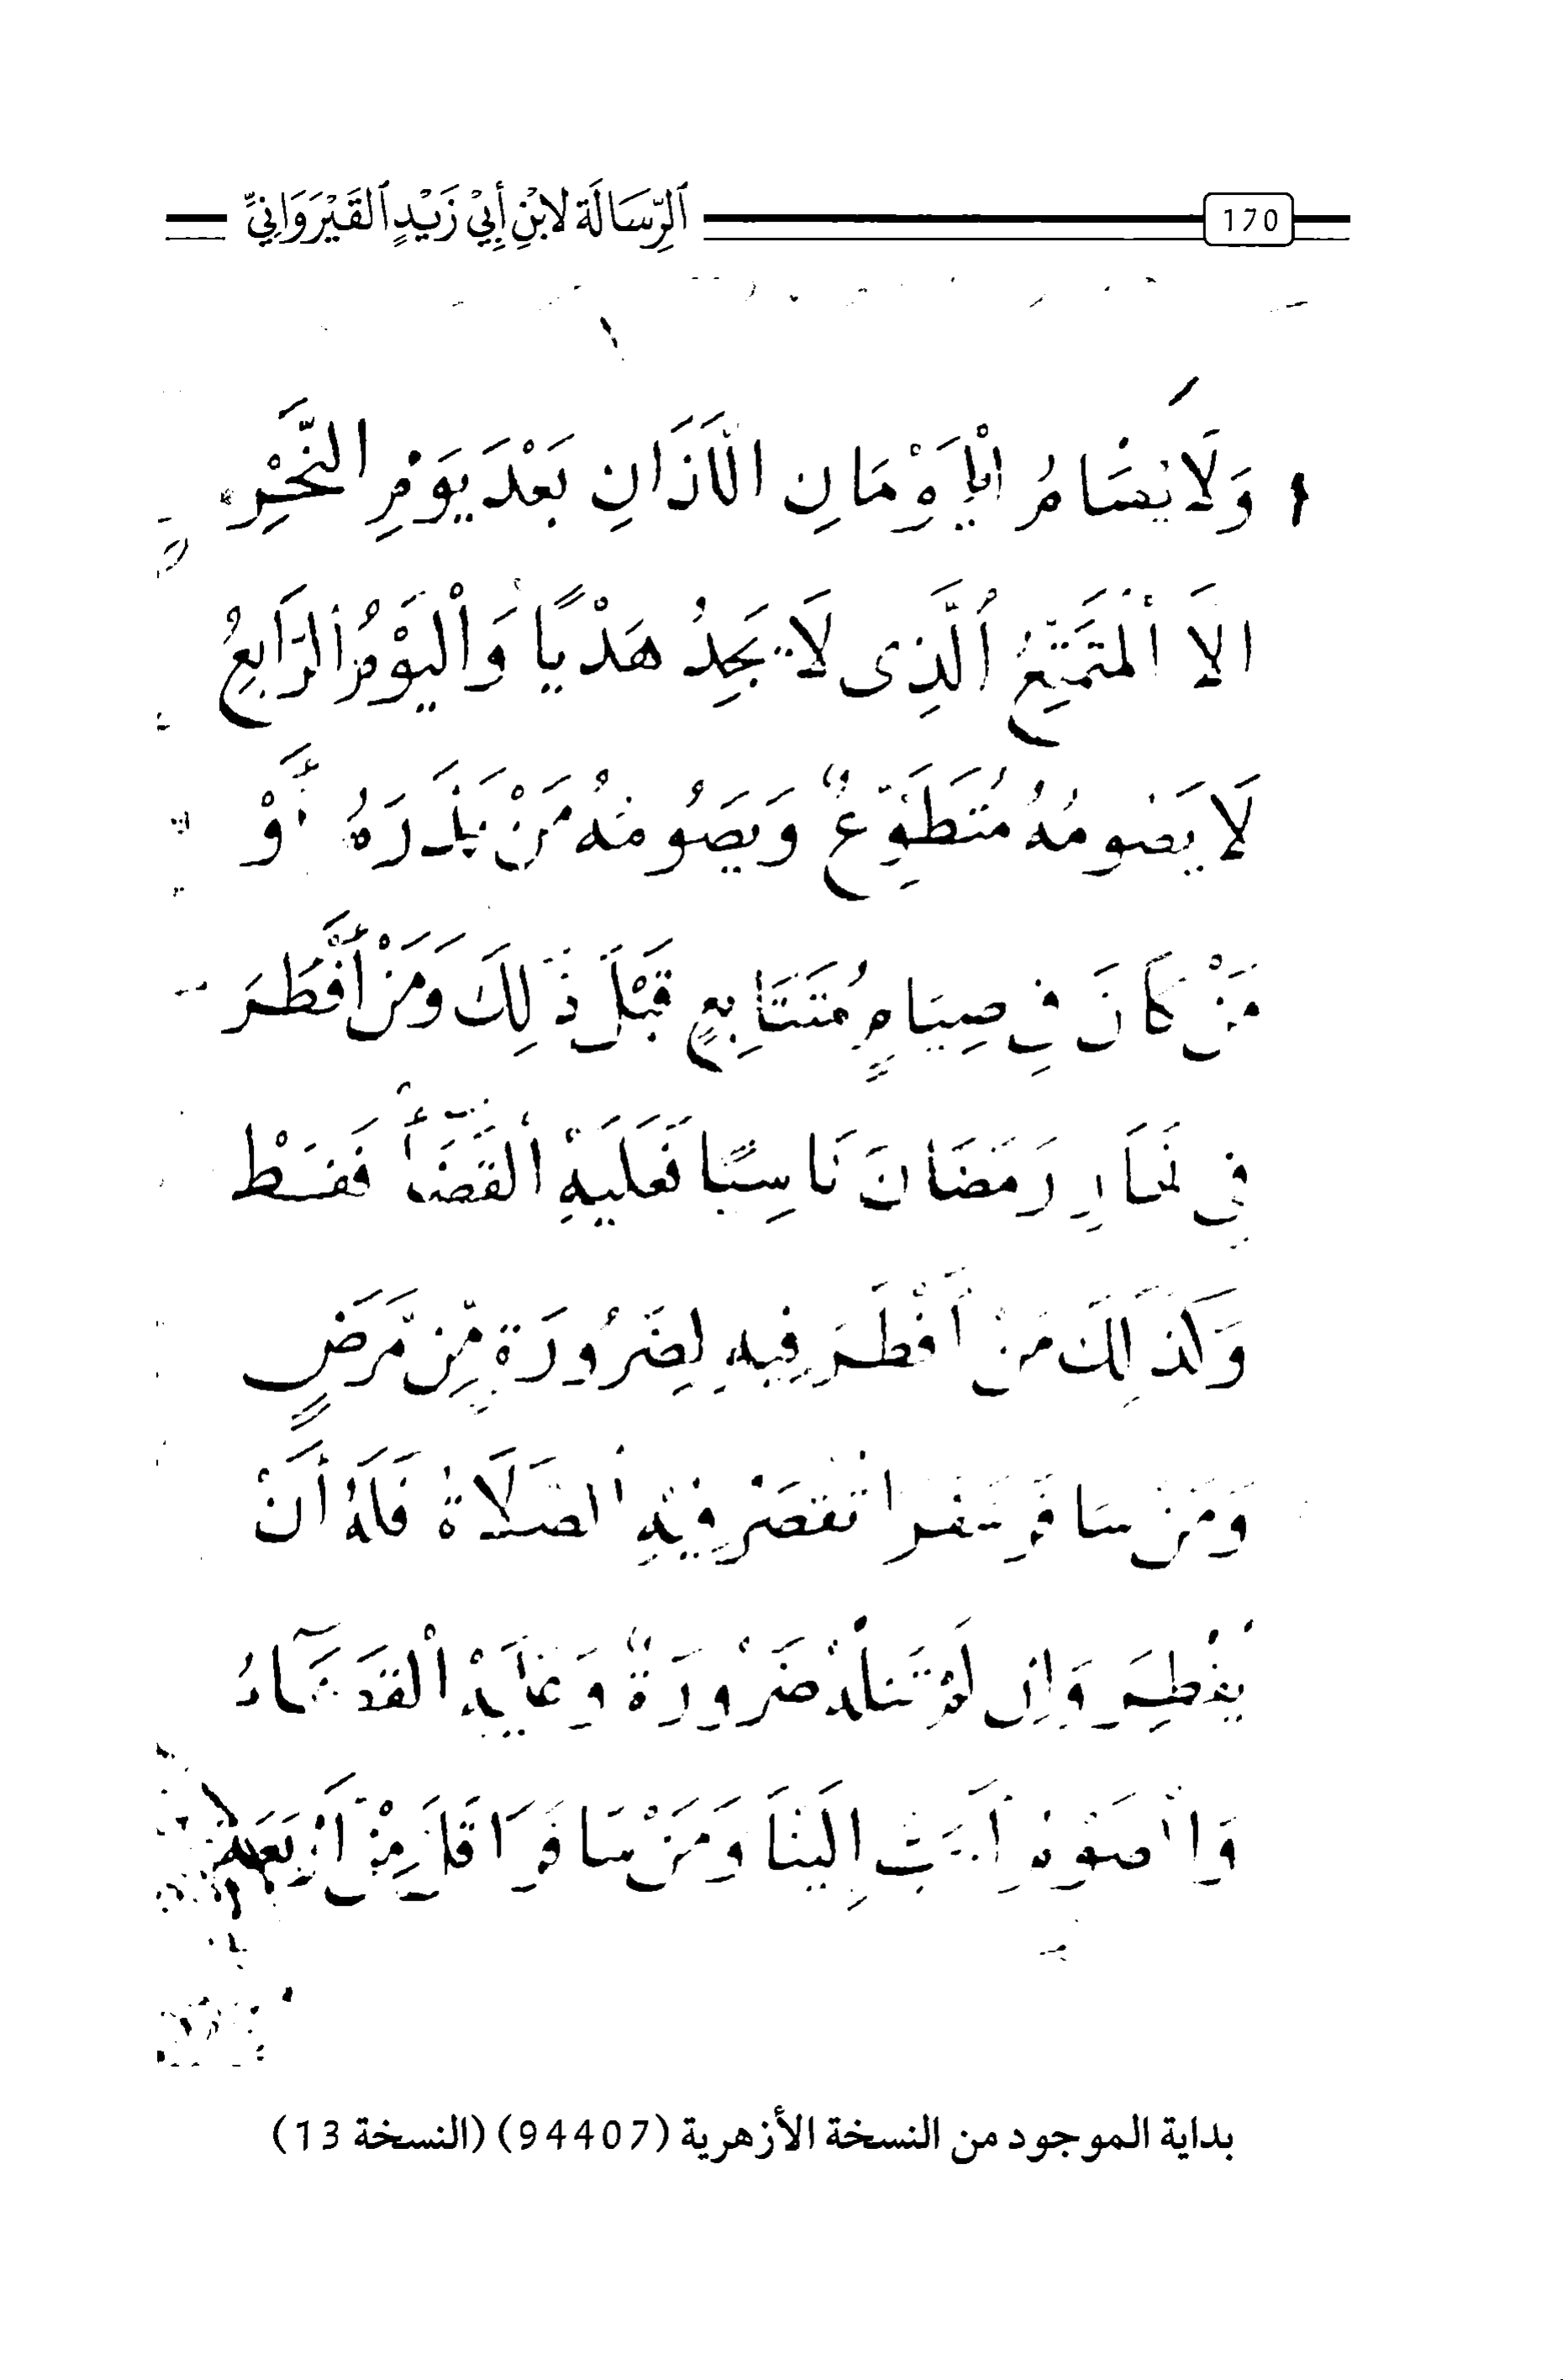 170
ٱلرِّسَالَة لابْنِ أَبِيْ زَيْدٍ ٱلقَيْرَوَانِيِّ
وَلَا يُصَامُ الْيَوْمَانِ اللَّذَانِ بَعْدَ يَوْمِ النَّحْرِ
الَّا الْمُتَمَتِّعُ الَّذِى لَا يَجِدُ هَدْيًا وَالْيَوْمُ الرَّابِعُ
لَا يَصُومُهُ مُتَطَوِّعٌ وَيَصُومُهُ مَنْ نَذَرَهُ أَوْ
مَنْ كَانَ فِي صِيَامٍ مُتَتَابِعٍ قَبْلَ ذَلِكَ وَمَنْ أَفْطَرَ
فِي نَهَارِ رَمَضَانَ نَاسِيًا فَعَلَيْهِ الْقَضَأُ فَقَطْ
وَكَذَلِكَ مَنْ أَفْطَرَ فِيهِ لِضَرُورَةٍ مِّنْ مَّرَضٍ
وَمَنْ سَافَرَ سَفَرا تُقْصَرُ فِيْهِ الصَّلَاةُ فَلَهُ أَنْ
يُفْطِرَ وَاِن لَمْ تَنَلْهُ ضَرُورَةٌ وَعَلَيْهِ الْقَضَآءُ
وَالصَّوْمُ أَحَبُّ اِلَيْنَا وَمَنْ سَافَرَ اَقَلَّ مِنْ اَرْبَعَةِ
بداية الموجود من النسخة الأزهرية (94407) (النسخة 13)